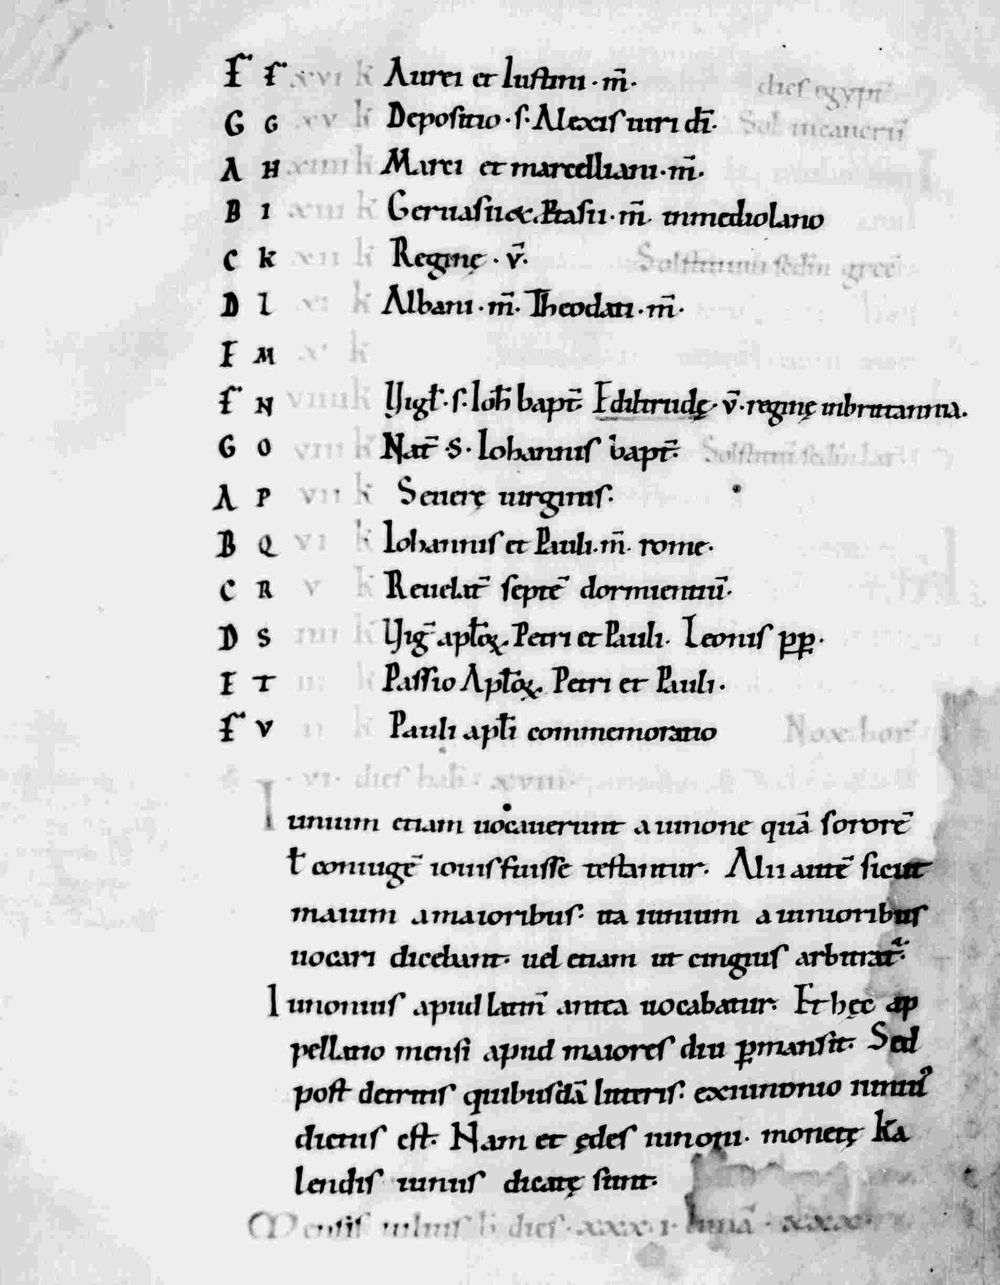 F F xvi k Aurei et Iustini · m̄· dies egypt̄
G G xv k Depositio · s · Alexis uiri dī· Sol in cancrū
A H xiiii k Marci et marcelliani · m̄·
B I xiii k Geruasii &. Ptasii · m̄· inmediolano
C K xii k Reginę · v̄· Solstitium sēdm grec̄
D L xi k Albani · m̄· Theodati · m̄·
E M x k
F N viiii k Vigl̄· s· Ioh̄ bapt̄· Ediltrudę v̄· reginę inbrittannia.
G O viii k Nat̄ S· Iohannis bapt̄· Solstitiū sēdm lat̄
A P vii k Seuerę uirginis·
B Q vi k Iohannis et Pauli· m̄· rome·
C R v k Reuelat̄ septē dormientiū·
D S iiii k Vig̅ aptōꝝ. Petri et Pauli· Leonis pp̄·
E T iii k Passio Aptōꝝ. Petri et Pauli·
F V ii k Pauli aptī commemoratio Nox hor̄
vi· dies hab̄· xviii·
Iunium etiam uocauerunt aiunone quā sororē
ł coniugē iouis fuisse testantur· Alii autē sicut
maium amaioribus· ita iunium a iunioribus
uocari dicebant· uel etiam ut cingius arbitrat̄·
Iunonius apud latin̄ antea uocabatur· Et hęc ap
pellatio mensi apud maiores diu ꝑmansit· Sed
post detritis quibusdā litteris· exiunonio iuniꝰ
dictus est· Nam et ędes iunoni· monetę ka
lendis iuniis dicatę sunt·
Mensis iulius h̄ dies· xxx·i· lunā· xxx·